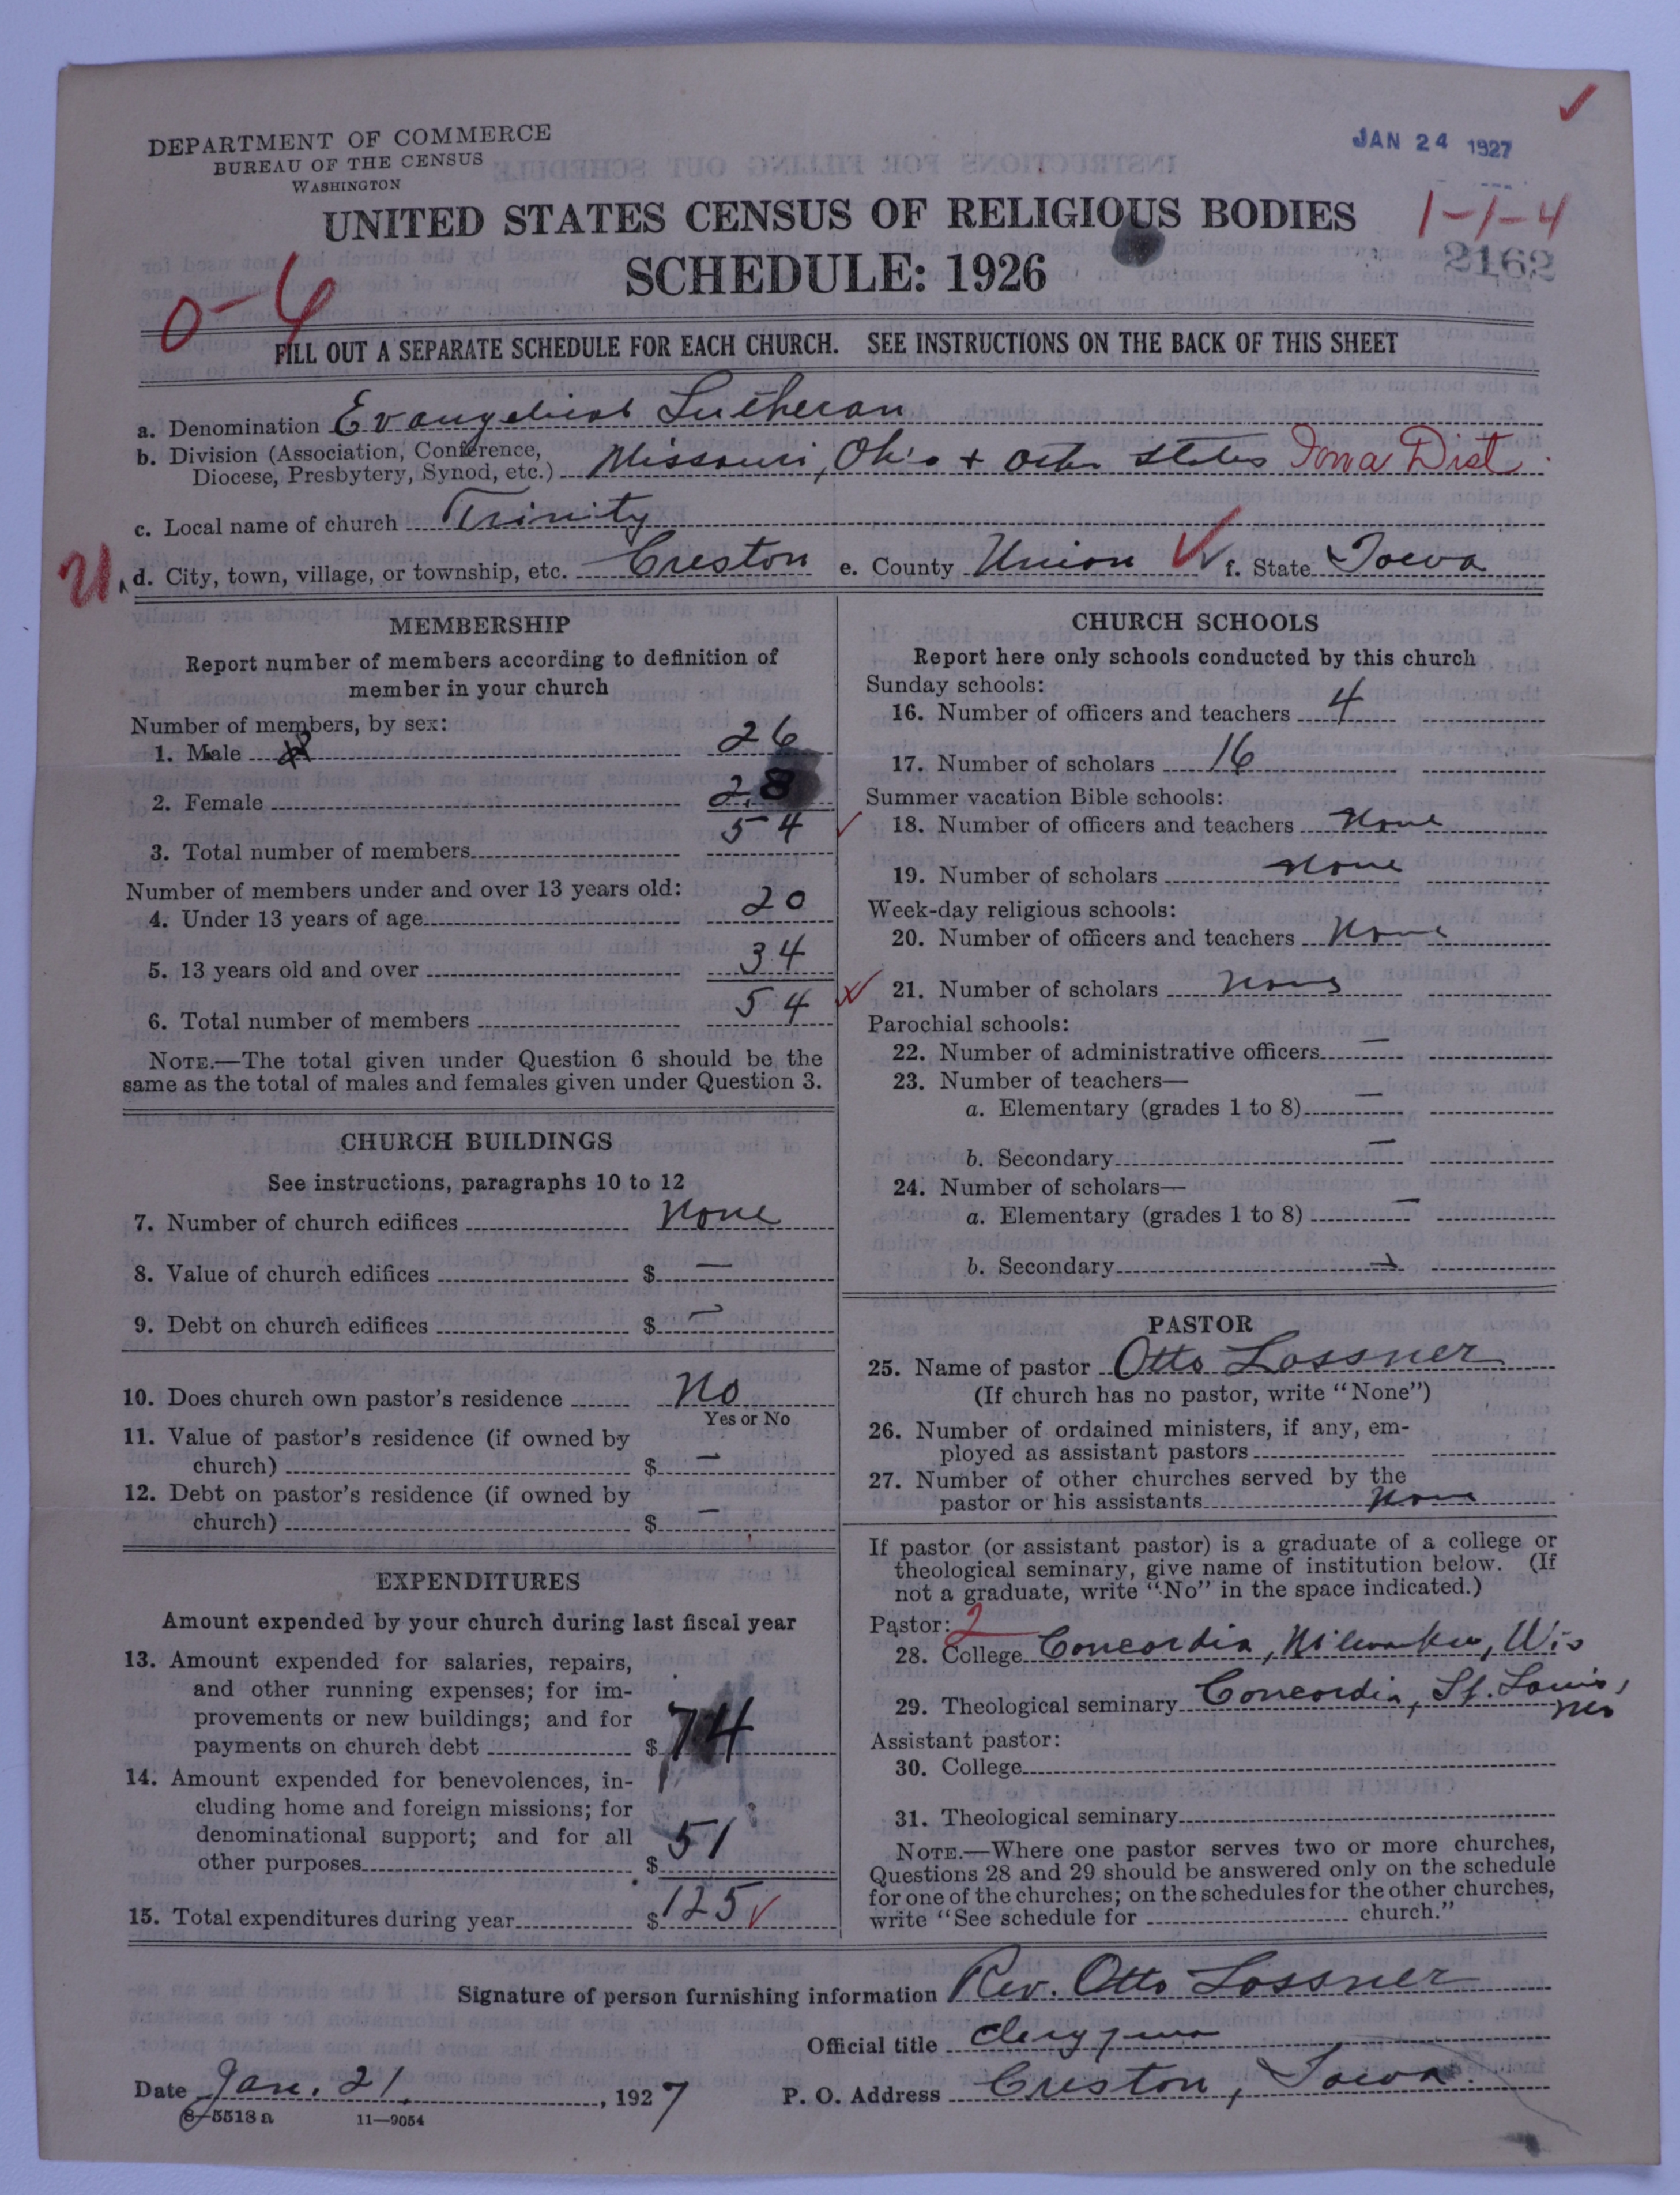 DEPARTMENT OF COMMERCE
BUREAU OF THE CENSUS
WASHINGTON
JAN 24 1927
UNITED STATES CENSUS OF RELIGIOUS BODIES
1-1-4
2162
SCHEDULE: 1926
0-6
FILL OUT A SEPARATE SCHEDULE FOR EACH CHURCH. SEE INSTRUCTIONS ON THE BACK OF THIS SHEET
a. Denomination Evangelical Lutheran
b. Division (Association, Conference, Diocese, Presbytery, Synod, etc.) Missouri, Ohio + other states Iowa Dist.
c. Local name of church Trinity
d. City, town, village, or township, etc. Creston e. County Union f. State Iowa
MEMBERSHIP
Report number of members according to definition of
member in your church
Number of members, by sex:
1. Male 26
2. Female 28
3. Total number of members 54
Number of members under and over 13 years old:
4. Under 13 years of age 20
5. 13 years old and over 34
6. Total number of members 54
NOTE.—The total given under Question 6 should be the
same as the total of males and females given under Question 3.
CHURCH BUILDINGS
See instructions, paragraphs 10 to 12
7. Number of church edifices None
8. Value of church edifices $ —
9. Debt on church edifices $ —
10. Does church own pastor's residence No
Yes or No
11. Value of pastor's residence (if owned by
church) $ —
12. Debt on pastor's residence (if owned by
church) $ —
EXPENDITURES
Amount expended by your church during last fiscal year
13. Amount expended for salaries, repairs,
and other running expenses; for im-
provements or new buildings; and for
payments on church debt $ 74
14. Amount expended for benevolences, in-
cluding home and foreign missions; for
denominational support; and for all
other purposes $ 51
15. Total expenditures during year $ 125
CHURCH SCHOOLS
Report here only schools conducted by this church
Sunday schools:
16. Number of officers and teachers 4
17. Number of scholars 16
Summer vacation Bible schools:
18. Number of officers and teachers None
19. Number of scholars None
Week-day religious schools:
20. Number of officers and teachers None
21. Number of scholars None
Parochial schools:
22. Number of administrative officers —
23. Number of teachers—
a. Elementary (grades 1 to 8) —
b. Secondary —
24. Number of scholars—
a. Elementary (grades 1 to 8) —
b. Secondary —
PASTOR
25. Name of pastor Otto Lossner
(If church has no pastor, write "None")
26. Number of ordained ministers, if any, em-
ployed as assistant pastors
27. Number of other churches served by the
pastor or his assistants None
If pastor (or assistant pastor) is a graduate of a college or
theological seminary, give name of institution below. (If
not a graduate, write "No" in the space indicated.)
Pastor: 2
28. College Concordia, Milwaukee, Wis
29. Theological seminary Concordia, St. Louis, Mo
Assistant pastor:
30. College
31. Theological seminary
NOTE.—Where one pastor serves two or more churches,
Questions 28 and 29 should be answered only on the schedule
for one of the churches; on the schedules for the other churches,
write "See schedule for church."
Signature of person furnishing information Rev. Otto Lossner
Official title Clergyman
Date Jan. 21, 1927 P. O. Address Creston, Iowa.
8—5518a 11—9054